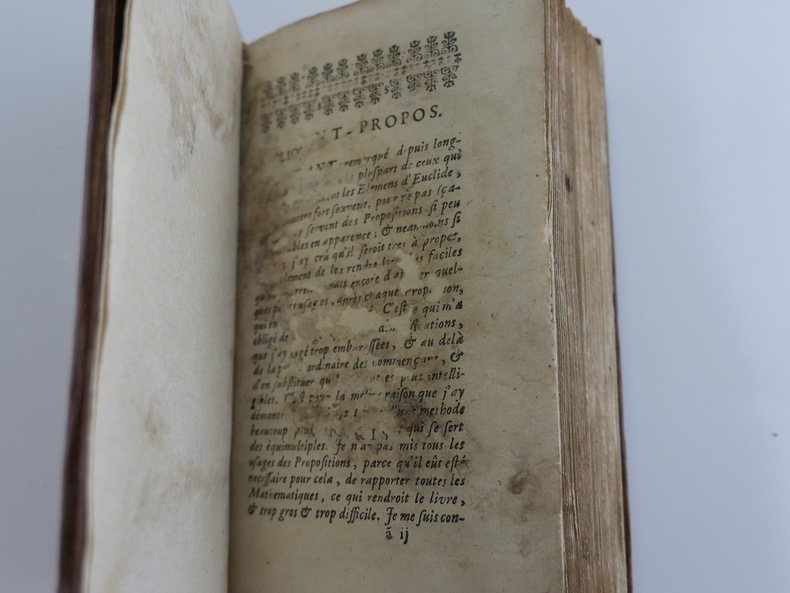 NT-PROPOS.
remarqué depuis long-
pluspart de ceux qui
les Elemens d'Euclide,
fort souvent, pour ne pas sça-
servent des Propositions si peu
bles en apparence; & neanmoins si
j'ay crû qu'il seroit tres à propos,
de les rendre faciles
mais encore d'ajoûter quel-
ques usages, aprés chaque Proposition,
qui en C'est ce qui m'a
obligé de
que j'ay jugé trop embarassées, & au delà
de la ordinaire des commençans, &
d'en substituer plus intelli-
gibles. C'est pour la même raison que j'ay
methode
beaucoup plus qui se sert
des équimultiples. Je n'ay pas mis tous les
usages des Propositions, parce qu'il eût esté
necessaire pour cela, de rapporter toutes les
Mathematiques, ce qui rendroit le livre,
& trop gros & trop difficile. Je me suis con-
ã ij